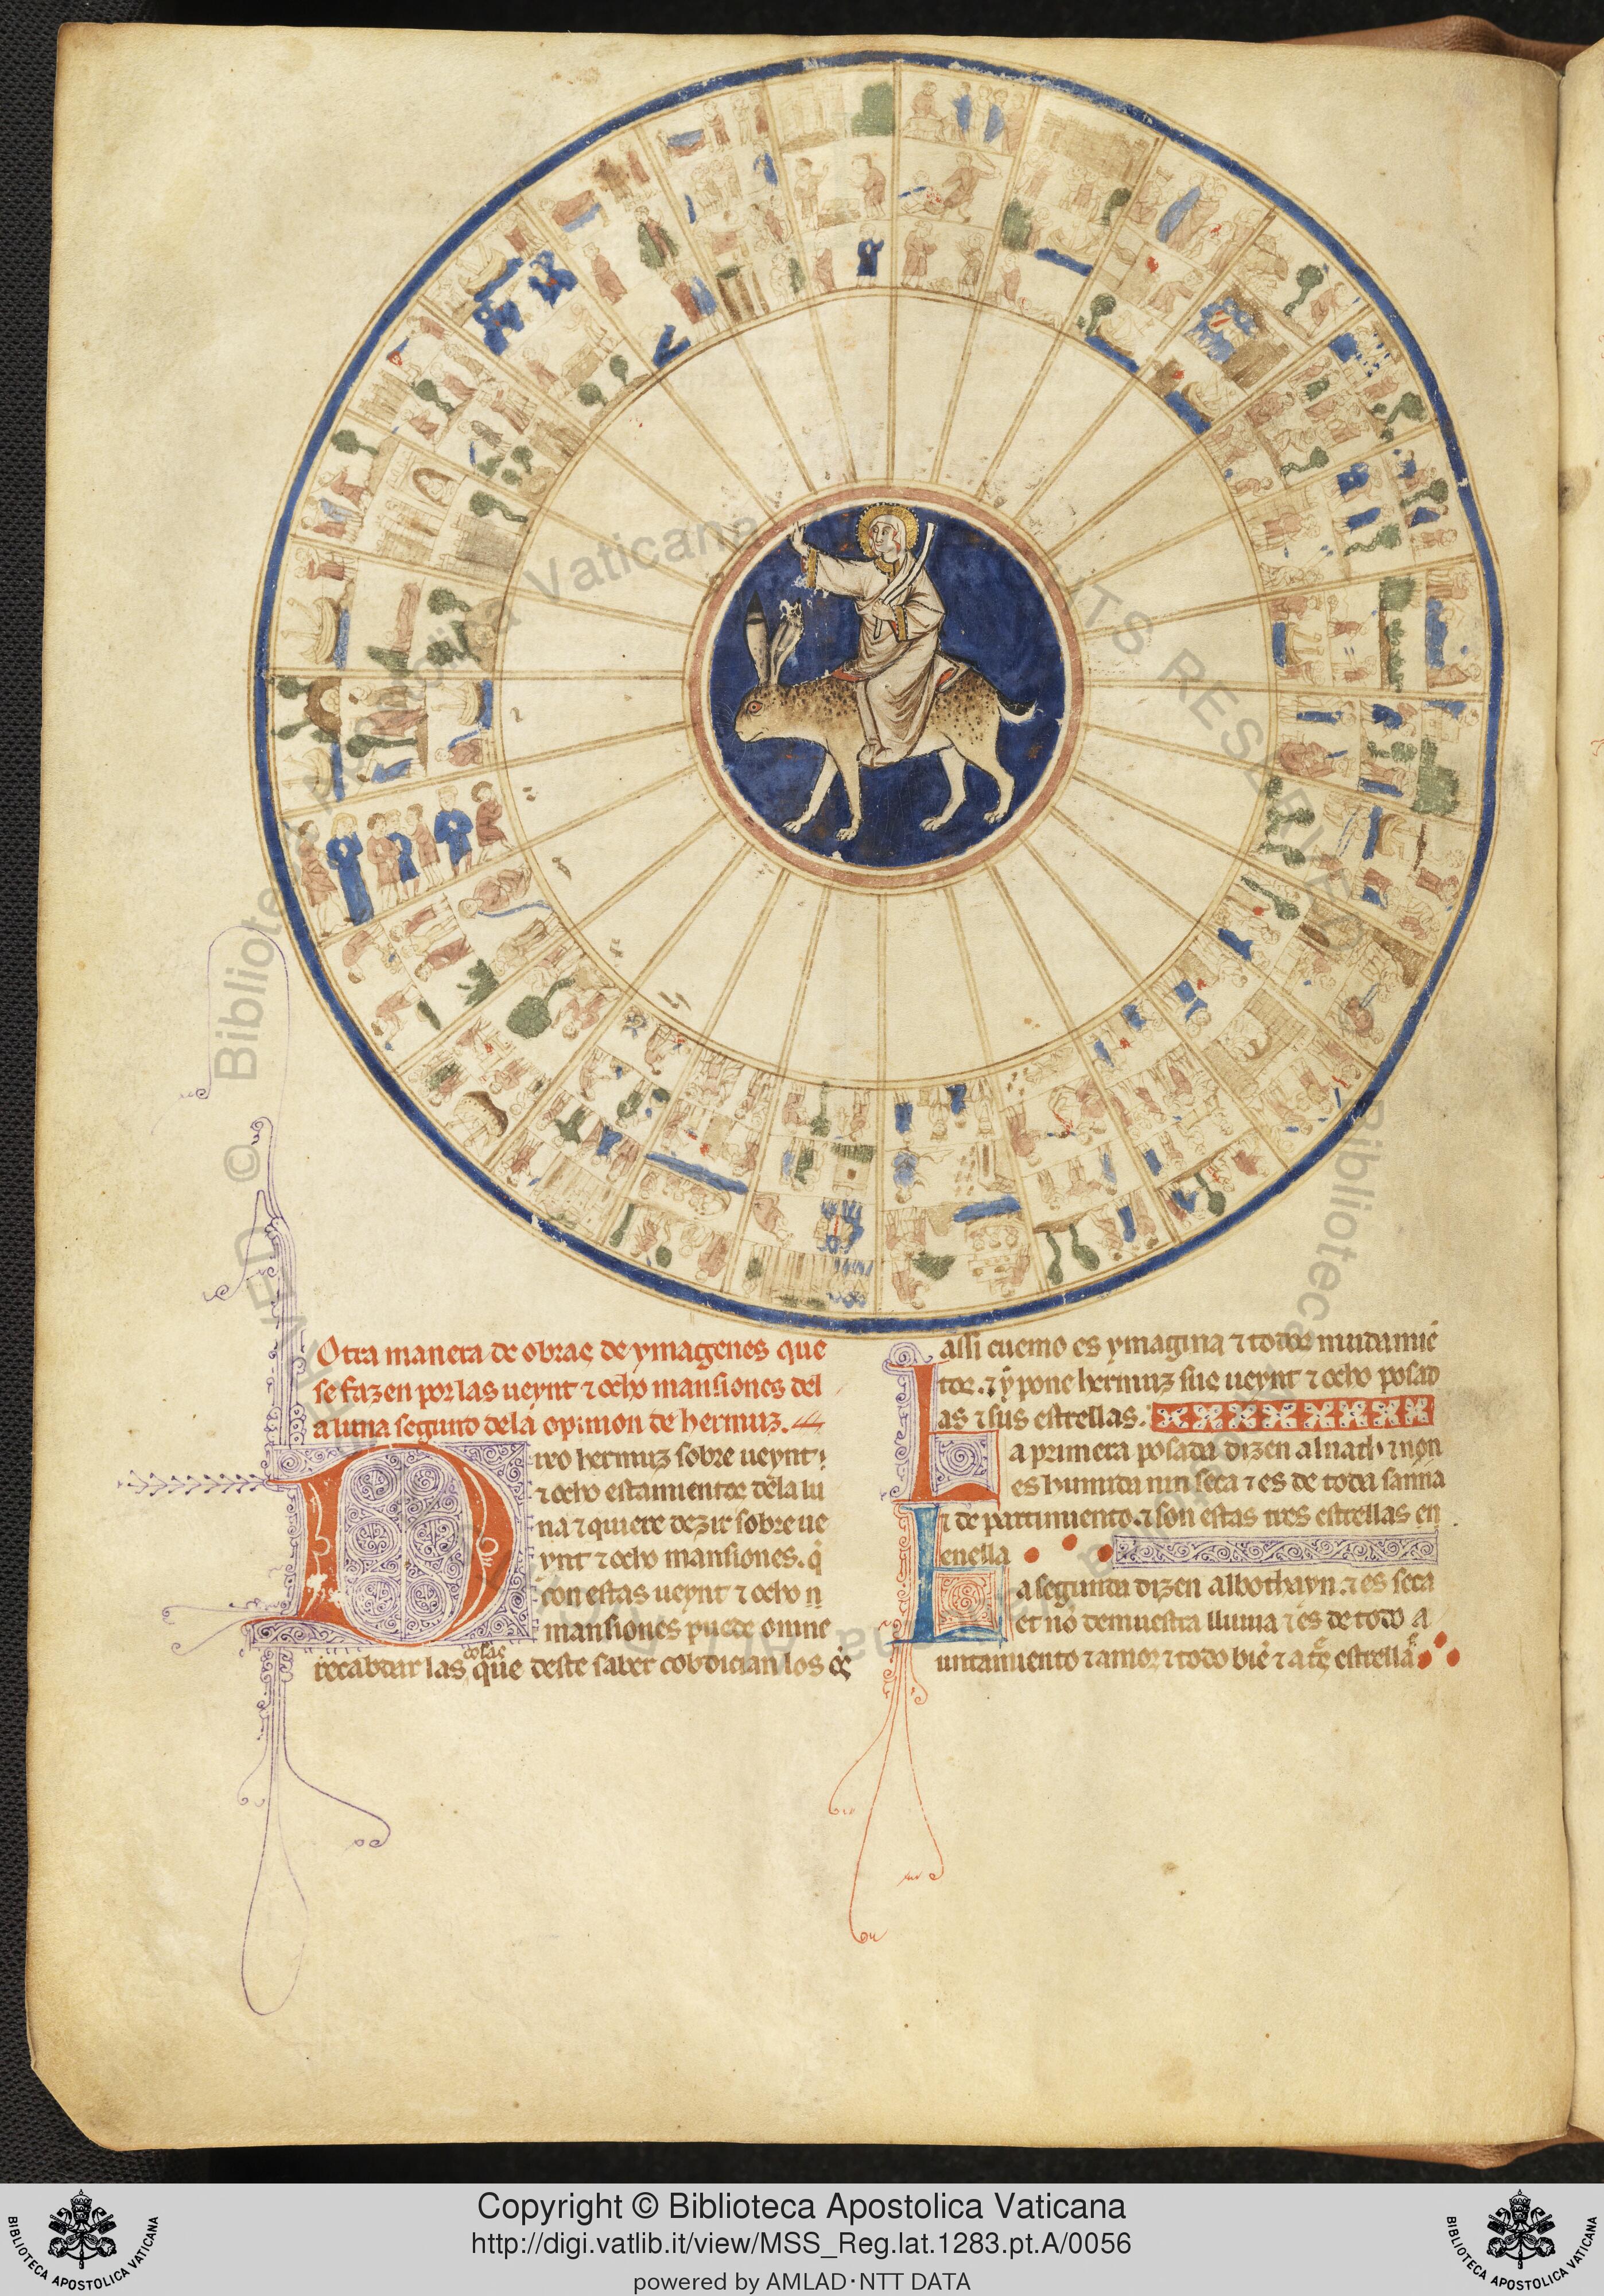 Otra manera de obras de ymagenes que
se fazen por las ueynt ⁊ ocho mansiones del
a luna segund dela opinion de hermuz.
Dixo hermuz sobre ueynt
⁊ ocho estamientos dela lu
na ⁊ quiere dezir sobre ue
ynt ⁊ ocho mansiones. q̇
con estas ueynt ⁊ ocho
mansiones puede omne
recabdar las cosas que deste saber cobdician los
assi cuemo es ymagina ⁊ todos mudamiē
tos. ⁊ y pone hermuz sus ueynt ⁊ ocho posad
as ⁊ sus estrellas.
La primera posada dizen alnath ⁊ non
es humida nin seca ⁊ es de toda sanna
⁊ de partimiento. ⁊ son estas tres estrellas en
enella
La segunda dizen albothayn. ⁊ es seca
et nō demuestra lluuia ⁊ es de todo a
untamiento ⁊ amor ⁊ todo biē ⁊ a estrellas
© Biblioteca Apostolica Vaticana
RIGHTS RESERVED
Copyright © Biblioteca Apostolica Vaticana
http://digi.vatlib.it/view/MSS_Reg.lat.1283.pt.A/0056
powered by AMLAD·NTT DATA
BIBLIOTECA APOSTOLICA VATICANA
BIBLIOTECA APOSTOLICA VATICANA